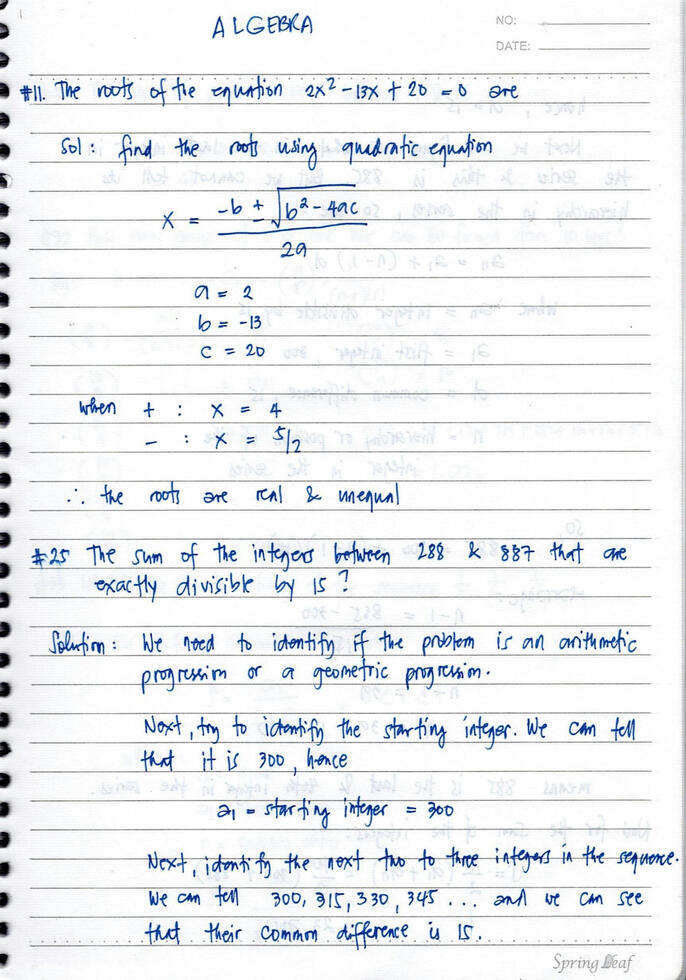 ALGEBRA
NO:
DATE:
#11. The roots of the equation 2x² - 13x + 20 = 0 are
Sol : find the roots using quadratic equation
x = -b ± √b² - 4ac
2a
a = 2
b = -13
c = 20
when + : x = 4
- : x = 5/2
∴ the roots are real & unequal
#25 The sum of the integers between 288 & 887 that are
exactly divisible by 15 ?
Solution : We need to identify if the problem is an arithmetic
progression or a geometric progression.
Next, try to identify the starting integer. We can tell
that it is 300, hence
a₁ = starting integer = 300
Next, identify the next two to three integers in the sequence.
We can tell 300, 315, 330, 345 ... and we can see
that their common difference is 15.
Spring Leaf